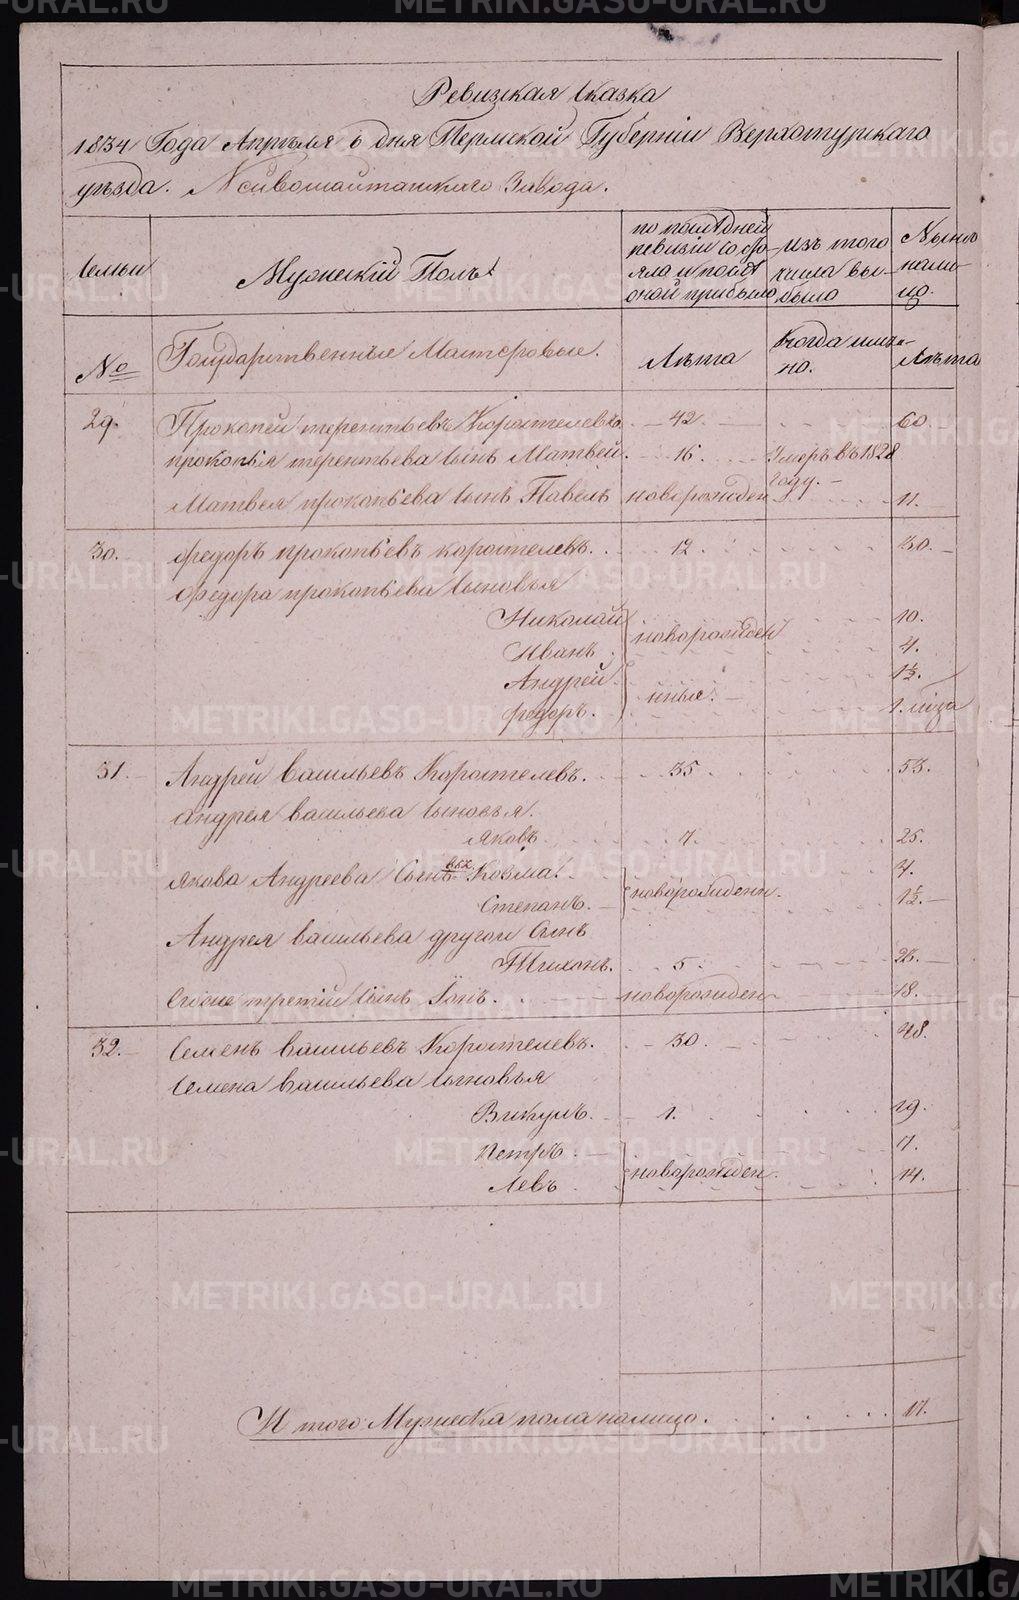 Ревизкая Сказка
1834 Года Апрѣля 6 дня Пермской Губерніи Верхотурскаго
уѣзда. Нейвошайтанскаго Завода.
Семьи
Мужескій Полъ
по последней ревизіи состояло и после оной прибыло
Изъ того числа выбыло
Нынѣ налицо.
№
Государственные Мастеровые.
Лѣта
Когда именно.
Лѣта
29. Прокопей терентьевъ Коростелевъ. 42. 60.
прокопья терентьева Сынъ Матвей. 16. Умеръ въ 1828 году.
Матвея прокопьева Сынъ Павелъ новорожден 11.
30. Федоръ прокопьевъ коростелевъ. 12. 30.
Федора прокопьева Сыновья
Николай новорожден 10.
Иванъ. 4.
Андрей ные. 1½.
Федоръ. 1. міца
31. Андрей Васильевъ Коростелевъ. 35. 53.
Андрея васильева Сыновья.
Яковъ 7. 25.
Якова Андреева Сынъ Козма. новорожденн. 4.
Степанъ. 1½.
Андрея васильева другой Сынъ
Тихонъ. 5. 23.
Егоже третій Сынъ Іонъ. новорожден 18.
32. Семенъ Васильевъ Коростелевъ. 30. 48.
Семена Васильева Сыновья
Викулъ. 1. 19.
Петръ. новорожден. 7.
Левъ 14.
И того Мужеска пола налицо. 17.
METRIKI.GASO-URAL.RU